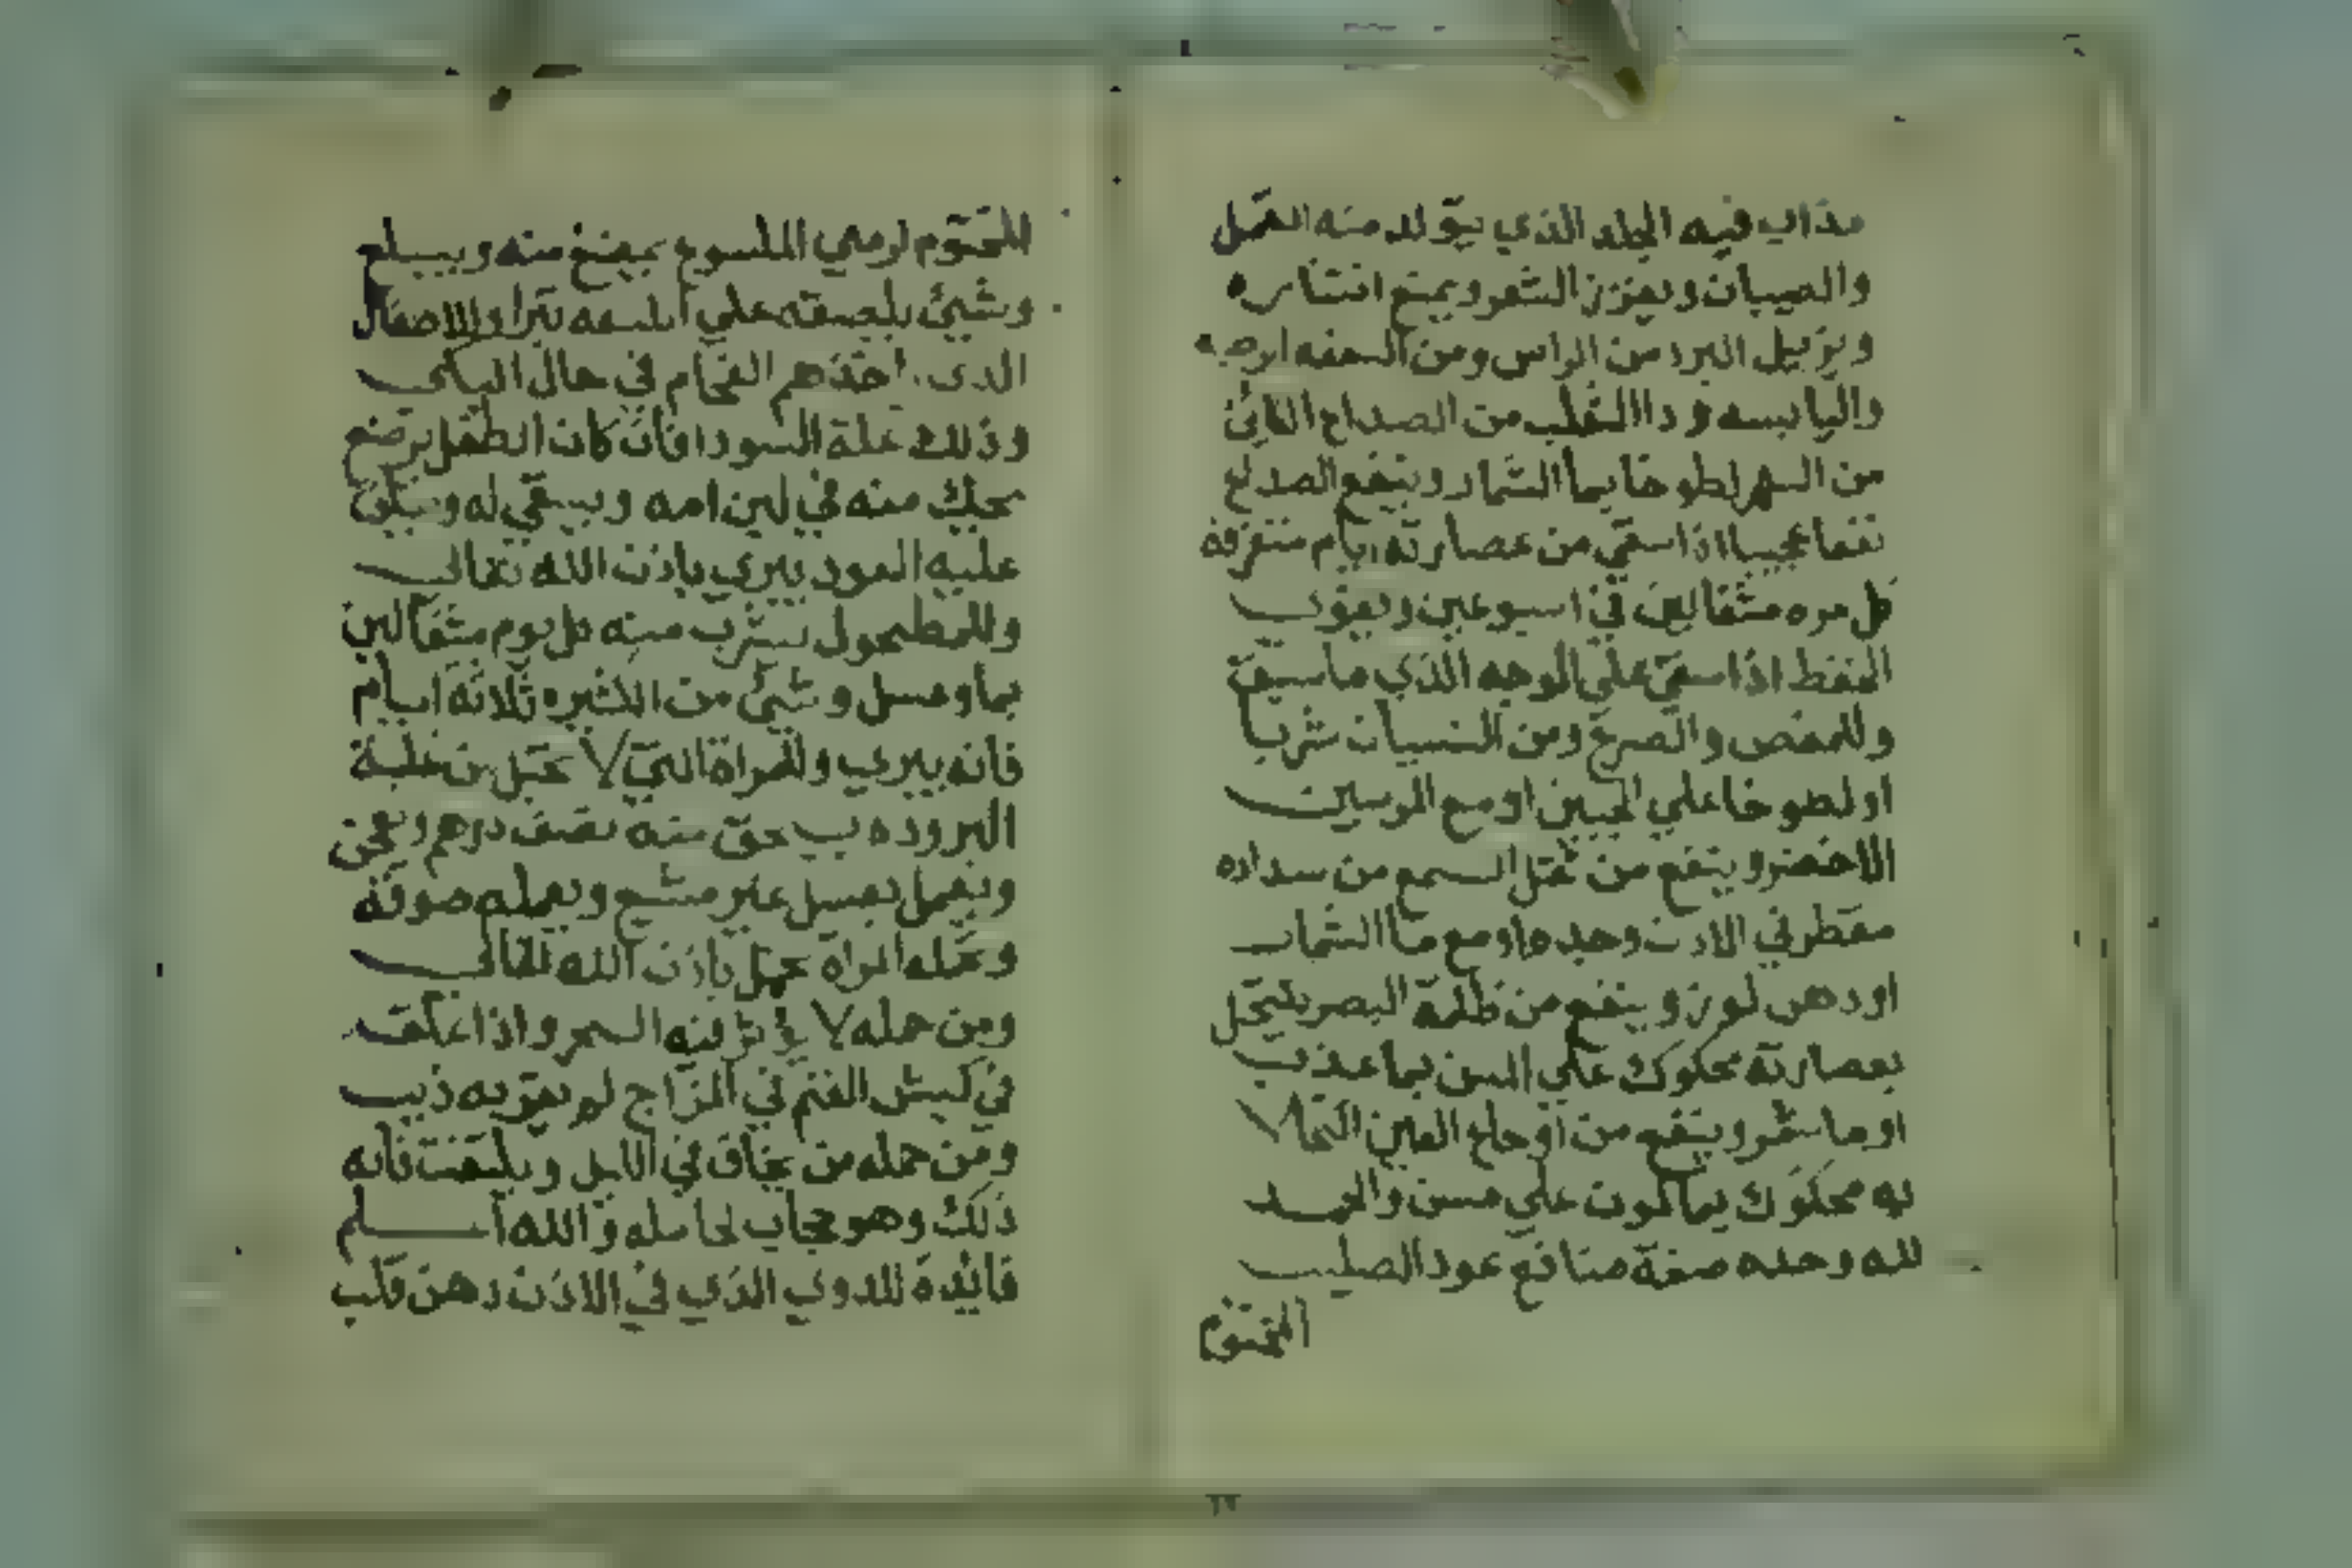 مذاب فيه الجلد الذي يتولد منه القمل
والصيبان ويعزز الشعر ويمنع انتشاره
ويزيل البرد من الراس ومن السعفه الرطبه
واليابسه وداالثعلب من الصداع الكائن
من السهر لطوخا بما الشمار وينفع الصداع
نفعا عجيبا اذا سقي من عصارته ايام متفرقة
كل مره مثقالين في اسبوعين ويعوب
النفط اذا سقي علي الوجه الذي ما سبق
وللمغص والصرع ومن النسيان شربا
او لطوخا علي الجبين او مع المرسين
الاخضر وينفع من ثقل السمع من سداده
مقطر في الاذن وحده او مع ما الشماب
او دهن لوز وينفع من ظلمة البصر يكتحل
بعصارته محكوك علي المسن بما عذب
او ما شمر وينفع من اوجاع العين اكتحالا
به محكوك بما الموت علي مسن والحمد
لله وحده صفة منافع عود الصليب
المختوم
للمحتوم لرمي الملسوع يمضغ منه ويبلع
وشئ يلصقه علي اللسعه تبرا وللاطفال
الذي اخذهم الفحام في حال البكي
وذلك علة السودا فان كان الطفل يرضع
يحك منه في لبن امه ويسقي له ويعلق
عليه العود يبري باذن الله تعالي
وللمطحول يشرب منه كل يوم مثقالين
بما وعسل وشئ من الكثيره ثلاثة ايام
فانه يبري وللمراة التي لا تحبل من غلبة
البروده يسحق منه نصف درهم ويعجن
ويعمل بعسل غير مشمع ويعمله صوفة
وتحمله المراة تحبل باذن الله تعالي
ومن حمله لا يؤثر فيه السحر واذا علقته
في كبش الغنم في المراح لم يقربه ذيب
ومن حمله من يخاف في الليل ويلتفت فانه
ذلك وهو حجاب لحامله والله اعلم
فايدة للدوي الذي في الاذن دهن قلب